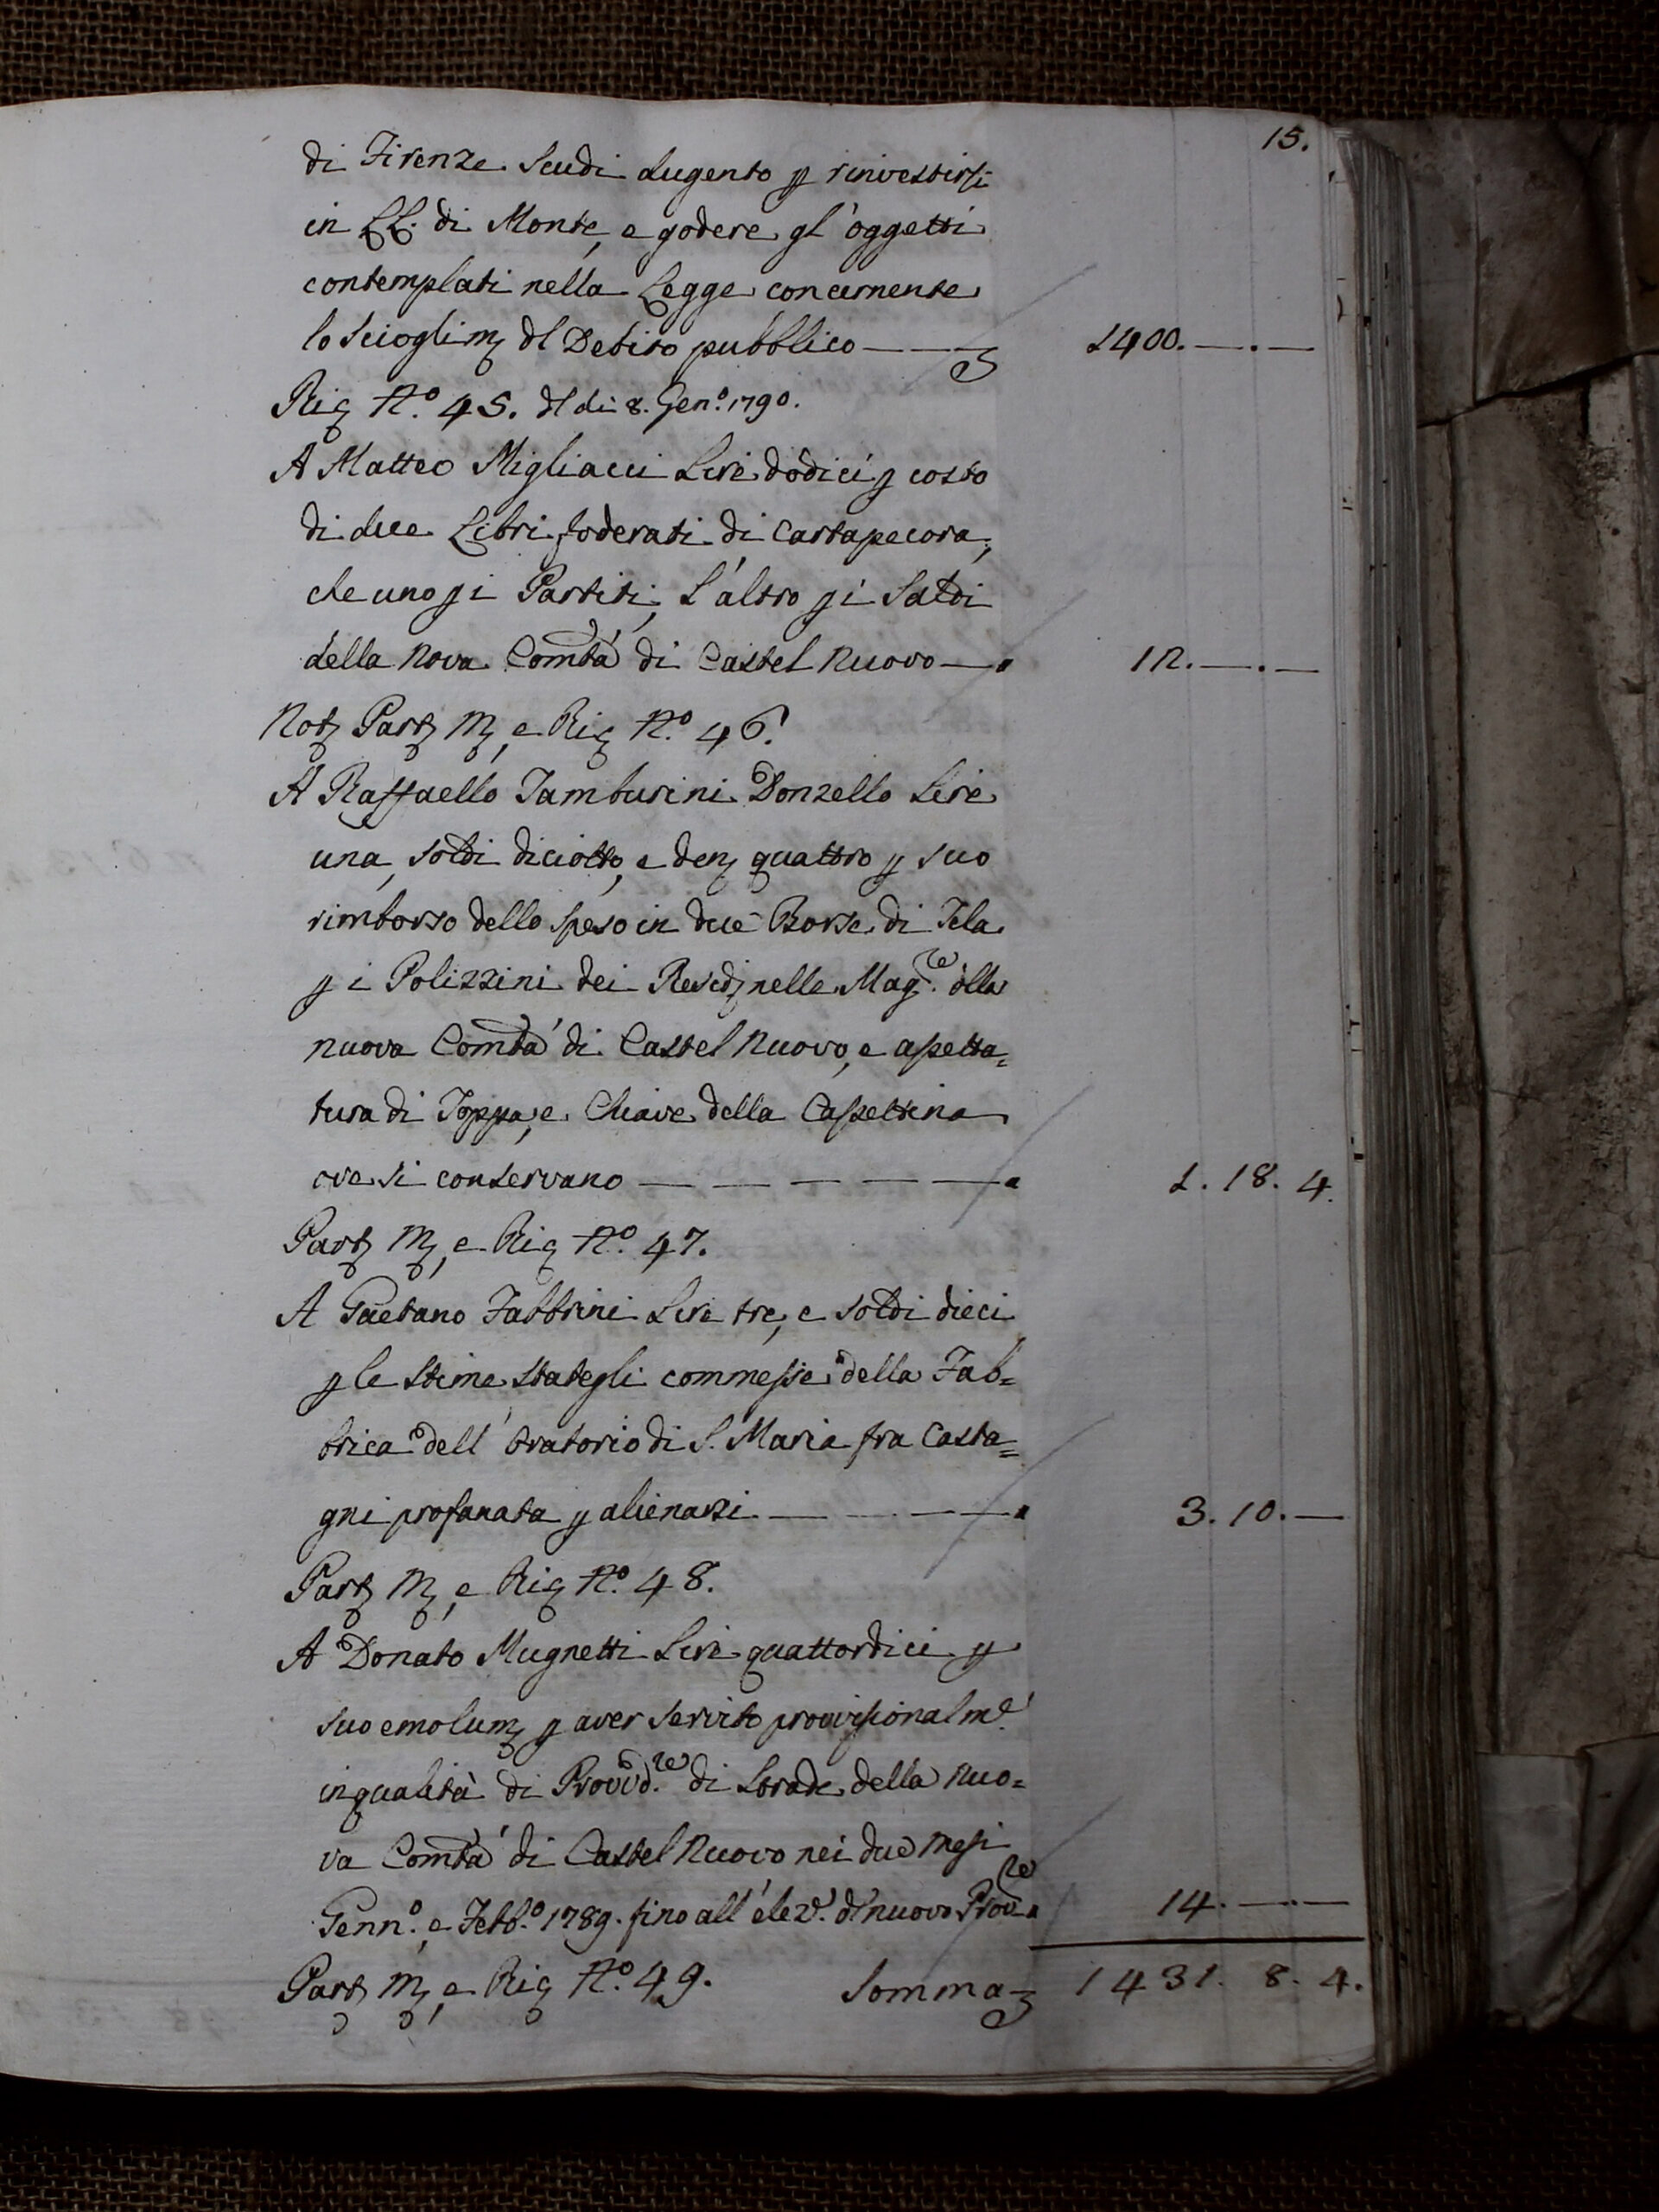 15.
di Firenze Scudi dugento p rinvestirsi
in LL. di Monte, e godere gl'oggetti
contemplati nella Legge concernente
lo Scioglim. dl Debito pubblico — — 1400. —.—
Rig N.° 45. dl dì 8. Gen.° 1790.
A Matteo Migliacci Lire dodici p costo
di due Libri foderati di Cartapecora,
che uno p i Partiti, L'altro p i Saldi
della Nova Comtà di Castel Nuovo — 12. —.—
Not Part M, e Rig N.° 46.
A Raffaello Tamburini Donzello Lire
una, soldi diciotto, e den quattro p suo
rimborso dello speso in due Borse di Tela
p i Polizzini dei Resid nelle Mag.re dlla
nuova Comtà di Castel Nuovo, e assetta=
tura di Toppa, e Chiave della Cassettina
ove si conservano — — — — — 1. 18. 4.
Part M, e Rig N.° 47.
A Gaetano Fabbrini Lire tre, e soldi dieci
p le stime stategli commesse della Fab=
brica dell'Oratorio di S. Maria fra Casta=
gni profanata p alienarsi — — — — 3. 10. —
Part M, e Rig N.° 48.
A Donato Mugnetti Lire quattordici p
suo emolum p aver servito provvisionalm.e
in qualità di Provvd.re di Strade della Nuo=
va Comtà di Castel Nuovo nei due Mesi
Genn.°, e Febb.° 1789. fino all'elez.e dl nuovo Prov.re 14. —.—
Part M, e Rig N.° 49. Somma 1431. 8. 4.